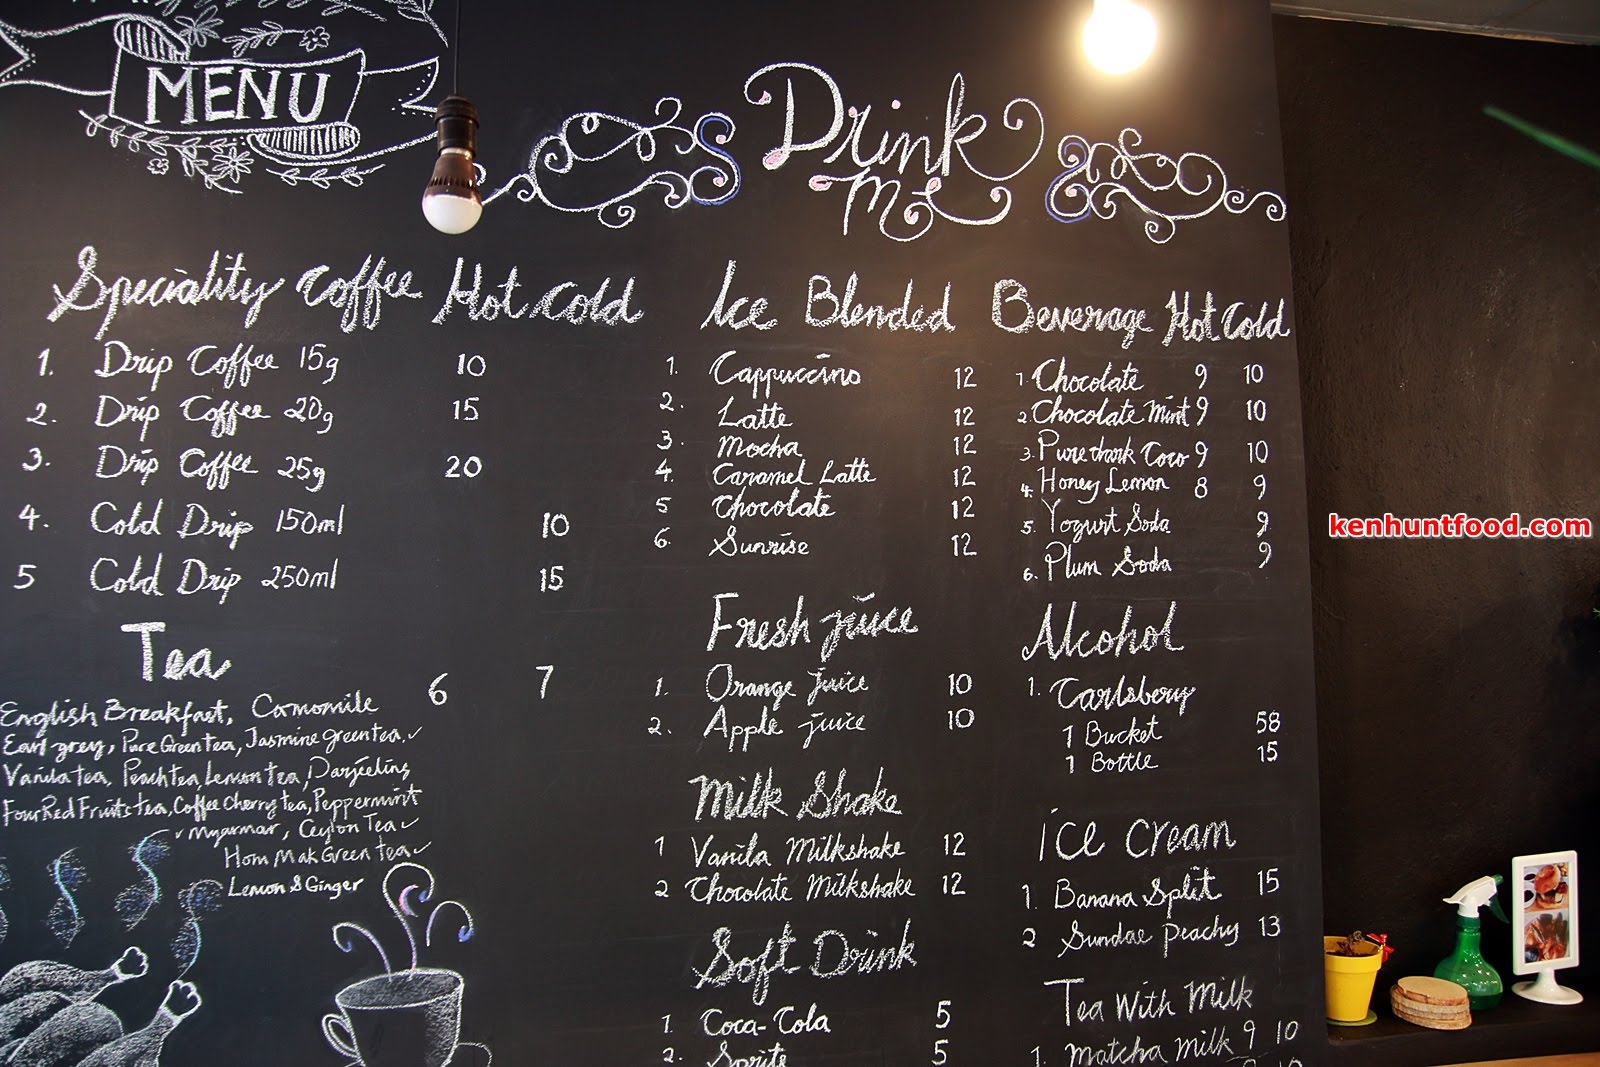 MENU
Drink
Me
Speciality Coffee Hot Cold
1. Drip Coffee 15g 10
2. Drip Coffee 20g 15
3. Drip Coffee 25g 20
4. Cold Drip 150ml 10
5 Cold Drip 250ml 15
Tea 6 7
English Breakfast, Camomile
Earl grey, Pure Green tea, Jasmine green tea.
Vanila tea, Peach tea, Lemon tea, Darjeeling
Four Red Fruits tea, Coffee Cherry tea, Peppermint
Myanmar, Ceylon Tea
Hom Mak Green tea
Lemon & Ginger
Ice Blended
1. Cappuccino 12
2. Latte 12
3. Mocha 12
4. Caramel Latte 12
5 Chocolate 12
6. Sunrise 12
Fresh juice
1. Orange juice 10
2. Apple juice 10
Milk Shake
1 Vanila Milkshake 12
2 Chocolate Milkshake 12
Soft Drink
1. Coca-Cola 5
2. Sprite 5
Beverage Hot Cold
1. Chocolate 9 10
2. Chocolate Mint 9 10
3. Pure dark Coco 9 10
4. Honey Lemon 8 9
5. Yogurt Soda 9
6. Plum Soda 9
Alcohol
1. Carlsberg
1 Bucket 58
1 Bottle 15
ice cream
1. Banana Split 15
2 Sundae Peachy 13
Tea With Milk
1. Matcha Milk 9 10
kenhuntfood.com